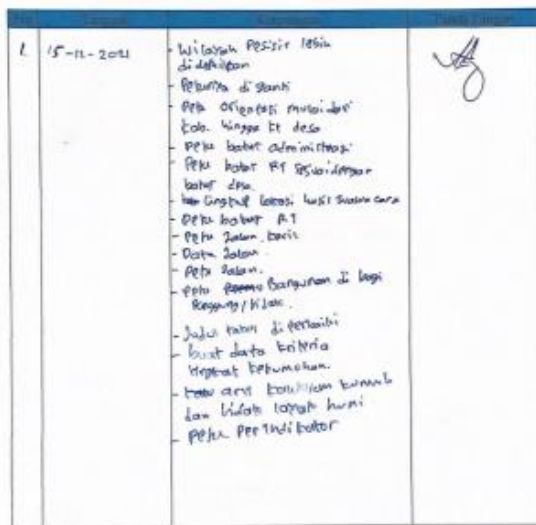 No Tanggal Keterangan Tanda Tangan
1. 15-12-2021
- Wilayah Pesisir lebih
di detailkan
- Petunya di ganti
- Peta orientasi mulai dari
kab. hingga ke desa
- Peta batas administrasi
- Peta batas RT sesuai dengan
batas desa.
- Lingkup lokasi hasil wawancara
- Peta batas RT
- Peta Jalan
- Data Jalan.
- Peta Jalan.
- Peta Bangunan di bagi
Panggung/tidak.
- Judul tabel di perbaiki
- buat data kriteria
tingkat kekumuhan.
- arti kumuh
dan tidak layak huni
- Peta Per Indikator